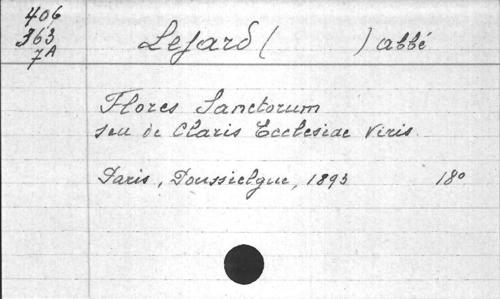 406
363
7A
Lejard ( ) abbé
Flores Sanctorum
seu de Claris Ecclesiae Viris
Paris, Poussielgue, 1893 18°